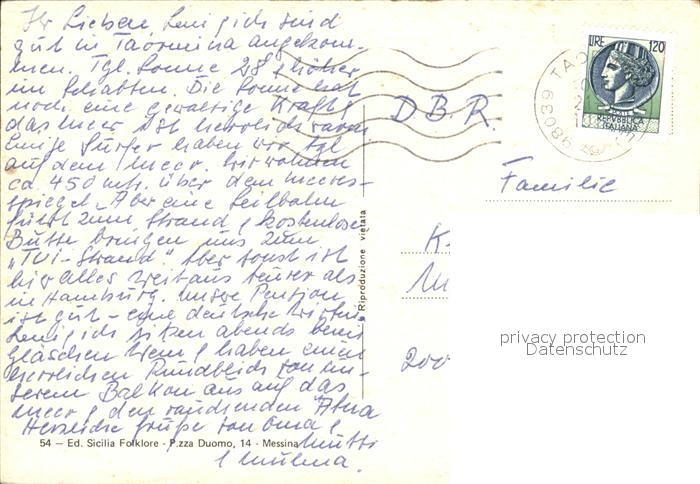 Ihr Lieben, Leni & ich sind
gut in Taormina angekom-
men. Tgl. Sonne 28° & höher
im Schatten. Die Sonne hat
noch eine gewaltige Kraft &
das Meer ist herrlich warm
Einige Surfer haben wir tgl
auf dem Meer. Wir wohnen
ca. 450 mtr. über dem Meeres-
spiegel. Aber eine Seilbahn
führt zum Strand & kostenlose
Busse bringen uns zum
"TUI-Strand". Aber sonst ist
hier alles weitaus teurer als
in Hamburg. Unsere Pension
ist gut - eine deutsche Wirtin
Leni & ich sitzen abends beim
Gläschen Wein & haben einen
herrlichen Rundblick von un-
serem Balkon aus auf das
Meer & den rauchenden Ätna
Herzliche Grüße von Oma &
Mutti
&
54 - Ed. Sicilia Folklore - P.zza Duomo, 14 - Messina
Riproduzione vietata
D B R.
LIRE 120
REPUBBLICA
ITALIANA
98039 TAO
Familie
K.
200
privacy protection
Datenschutz